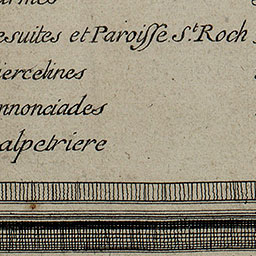 esuites et Paroisse S.t Roch
iercelines
nnonciades
alpetriere